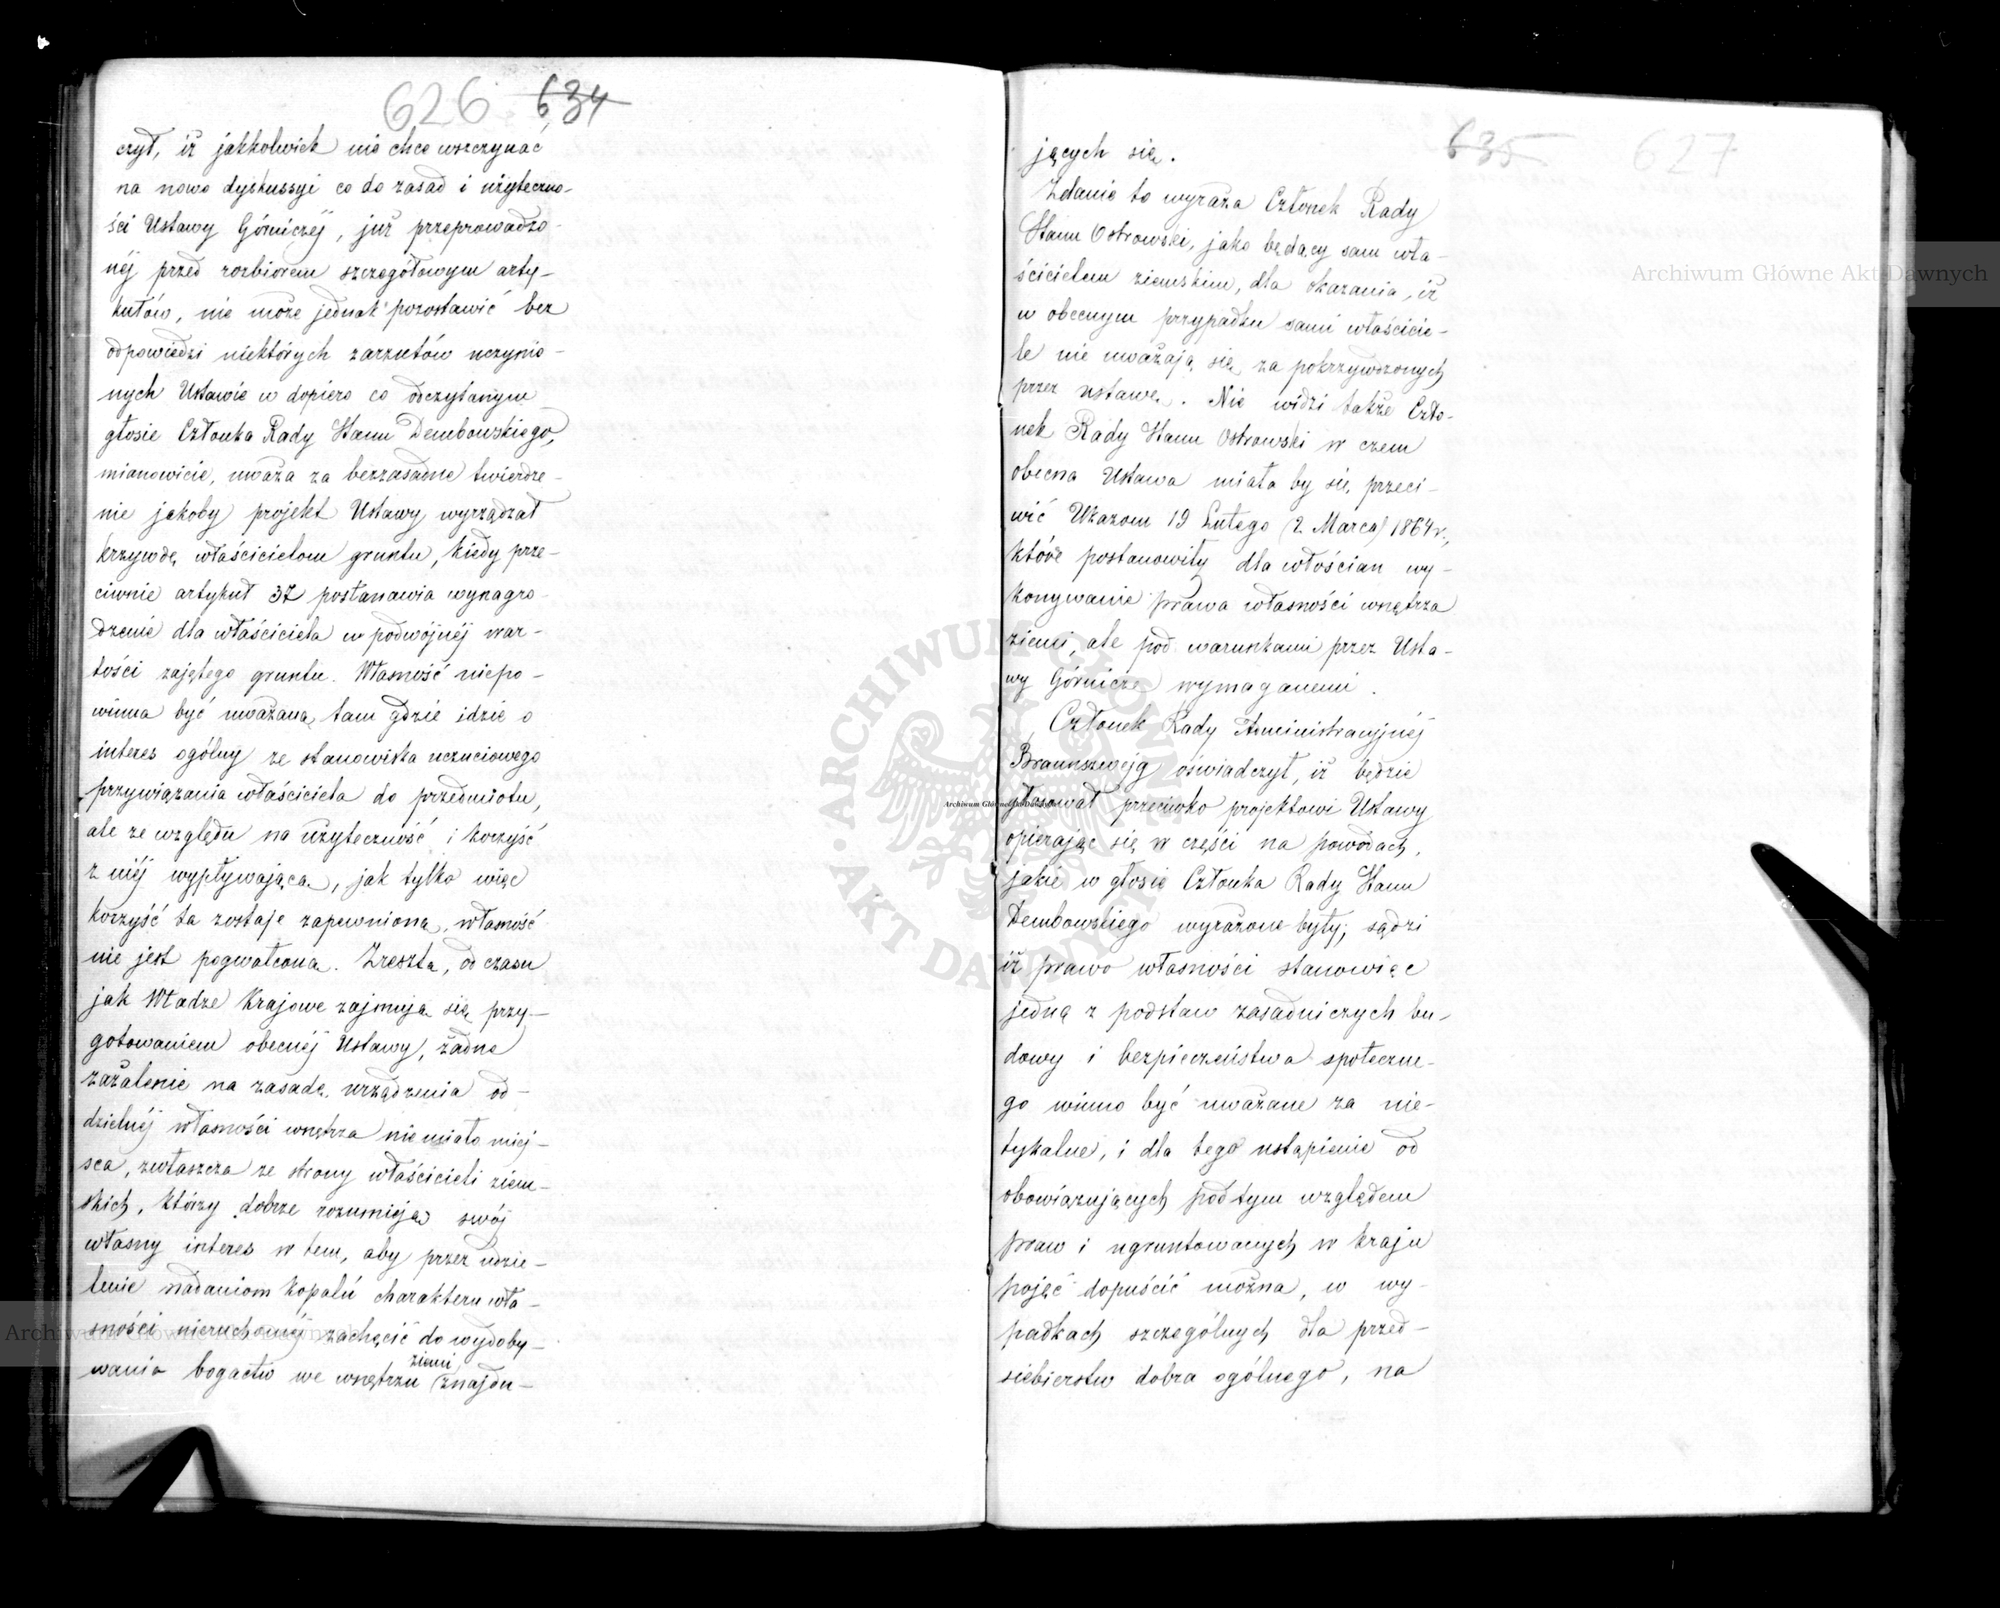 626 634
czył, iż jakkolwiek nie chce wszczynać
na nowo dyskussyi co do zasad i użyteczno-
ści Ustawy Górniczéj, już przeprowadzo-
néj przed rozbiorem szczegółowym arty-
kułów, nie może jednak pozostawić bez
odpowiedzi niektórych zarzutów uczynio-
nych Ustawie w dopiero co odczytanym
głosie Członka Rady Stanu Dembowskiego,
mianowicie, uważa za bezzasadne twierdze-
nie jakoby projekt Ustawy wyrządzał
krzywdę właścicielom gruntu, kiedy prze-
ciwnie artykuł 37 postanawia wynagro-
dzenie dla właściciela w podwójnéj war-
tości zajętego gruntu. Własność niepo-
winna być uważaną tam gdzie idzie o
interes ogólny ze stanowiska uczuciowego
przywiązania właściciela do przedmiotu,
ale ze względu na użyteczność i korzyść
z niéj wypływającą, jak tylko więc
korzyść ta zostaje zapewnioną, własność
nie jest pogwałconą. Zresztą, od czasu
jak Władze Krajowe zajmują się przy-
gotowaniem obecnéj Ustawy, żadne
zażalenie na zasadę urządzenia od-
dzielnéj własności wnętrza nie miało miej-
sca, zwłaszcza ze strony właścicieli ziem-
skich, którzy dobrze rozumieją swój
własny interes w tem, aby przez udzie-
lenie nadaniom kopalń charakteru wła-
sności nieruchoméj zachęcić do wydoby-
wania bogactw we wnętrzu ziemi znajdu-
635 627
jących się.
Zdanie to wyraża Członek Rady
Stanu Ostrowski, jako będący sam wła-
ścicielem ziemskim, dla okazania, iż
w obecnym przypadku sami właścicie-
le nie uważają się za pokrzywdzonych
przez ustawę. Nie widzi także Czło-
nek Rady Stanu Ostrowski w czem
obecna Ustawa miała by się przeci-
wić Ukazom 19 Lutego (2 Marca) 1864 r.,
które postanowiły dla włościan wy-
konywanie prawa własności wnętrza
ziemi, ale pod warunkami przez Usta-
wy Górnicze wymaganemi.
Członek Rady Administracyjnéj
Braunszwejg oświadczył, iż będzie
głosował przeciwko projektowi Ustawy
opierając się w części na powodach,
jakie w głosie Członka Rady Stanu
Dembowskiego wyrażone były; sądzi
iż prawo własności stanowiąc
jedną z podstaw zasadniczych bu-
dowy i bezpieczeństwa społeczne-
go winno być uważane za nie-
tykalne, i dla tego ustąpienie od
obowiązujących pod tym względem
praw i ugruntowanych w kraju
pojęć dopuścić można, w wy-
padkach szczególnych dla przed-
siebierstw dobra ogólnego, na
Archiwum Główne Akt Dawnych
ARCHIWUM GŁÓWNE AKT DAWNYCH
Archiwum Główne Akt Dawnych
Archiwum Główne Akt Dawnych